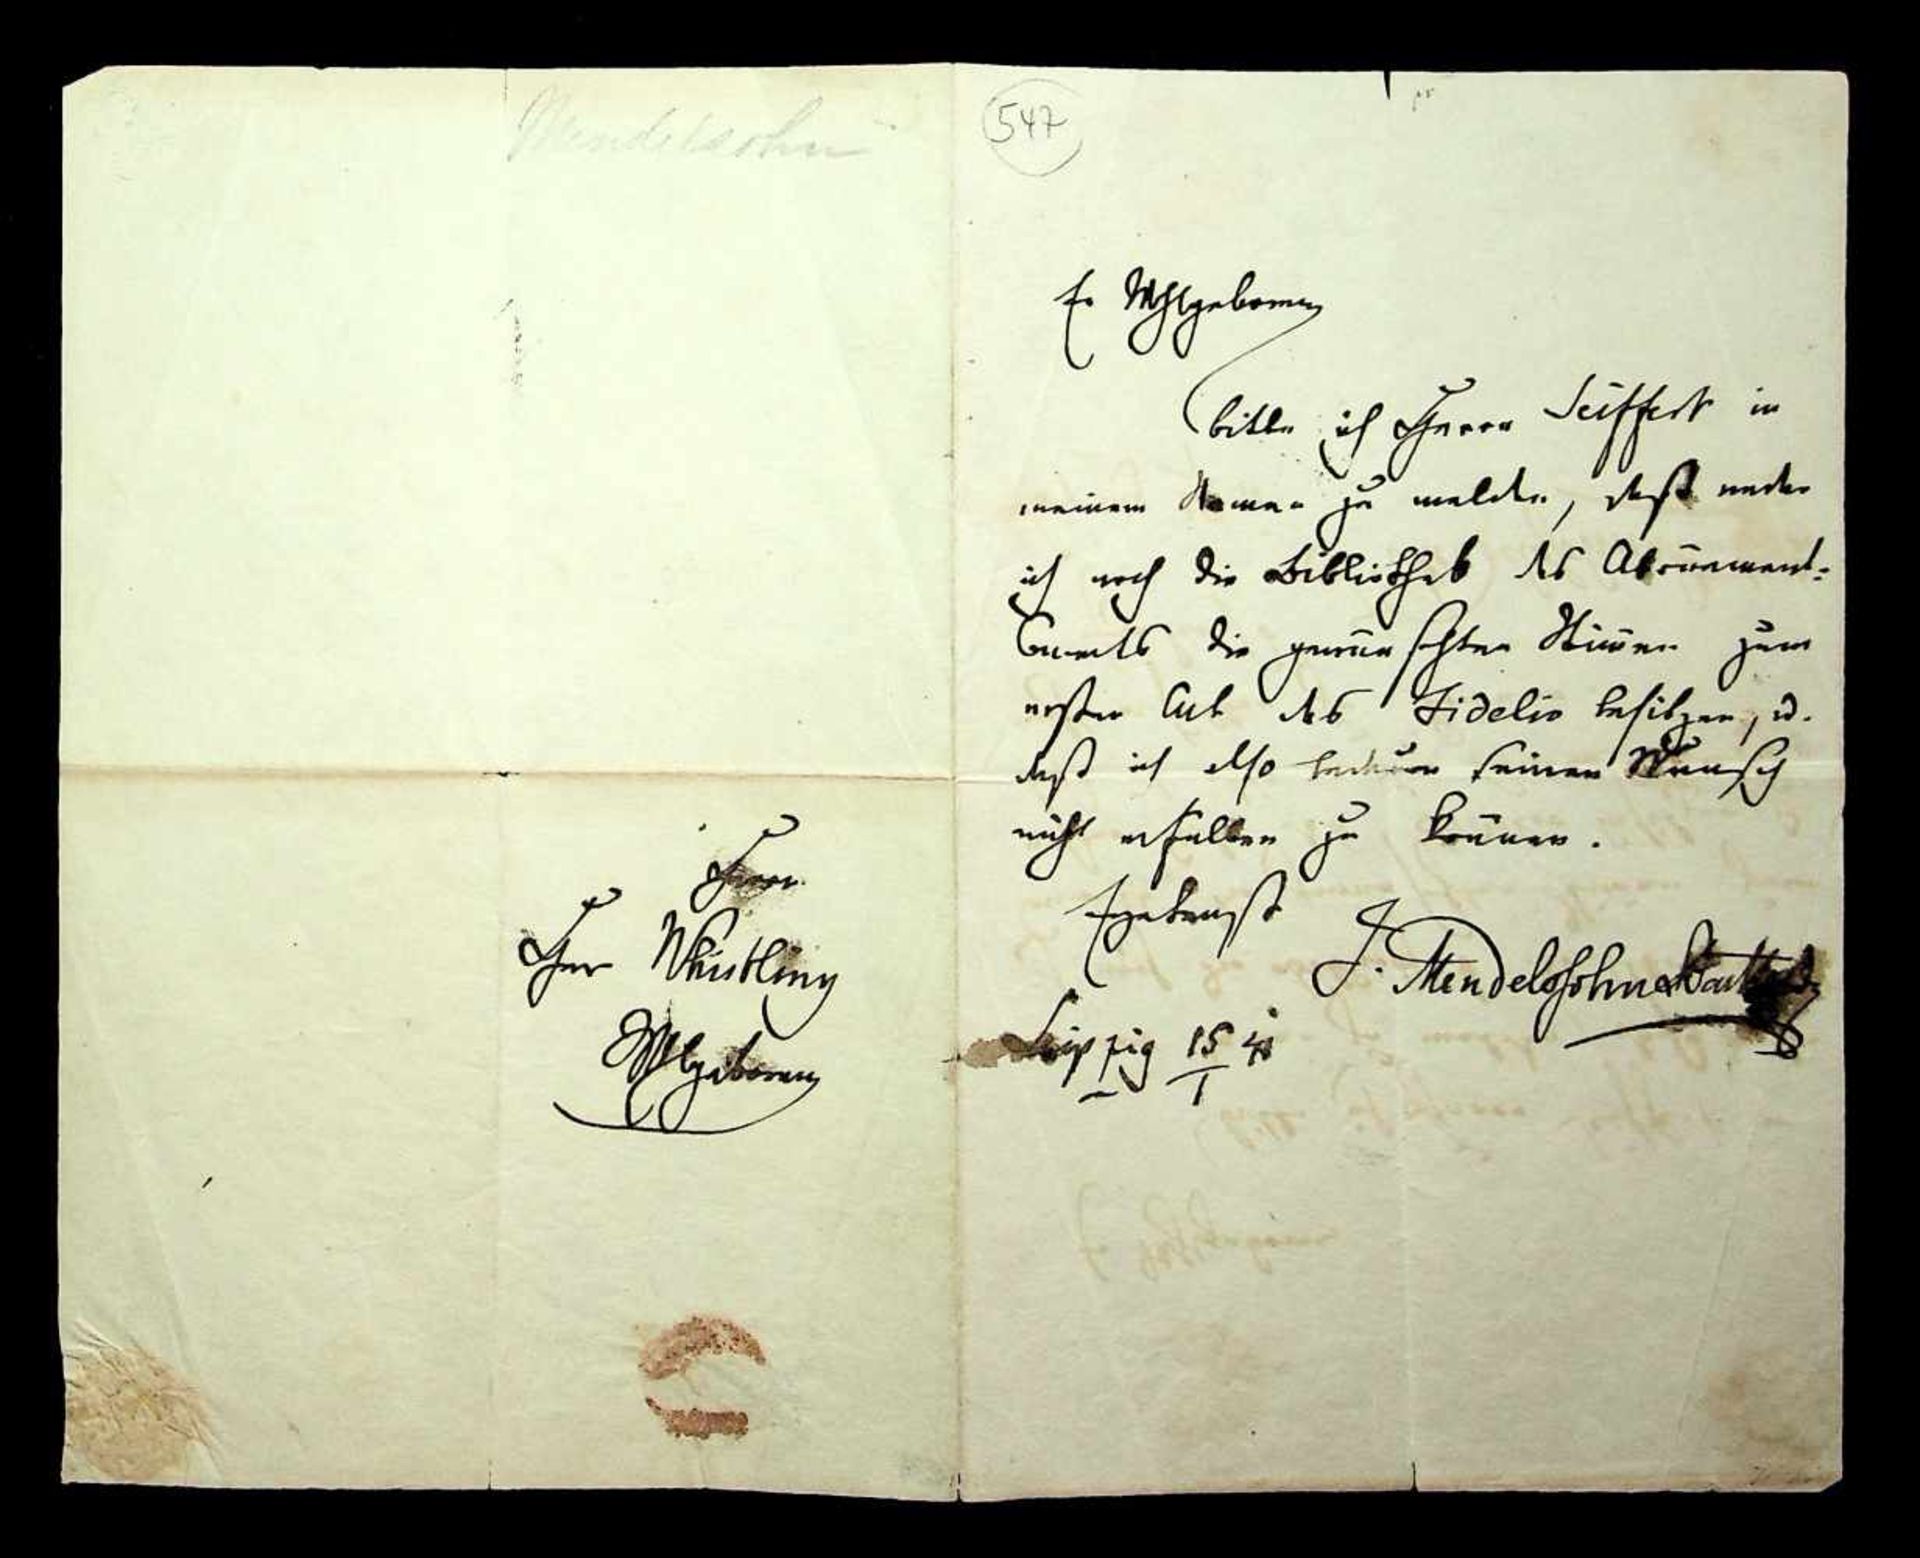 Mendelssohn
547
Ew Wohlgeboren
bitte ich Herrn Seiffert in
meinem Namen zu melden, daß weder
ich noch die Bibliothek des Abonnement-
Concerts die gewünschten Stimmen zum
ersten Act des Fidelio besitzen, u.
daß ich also bedaure seinen Wunsch
nicht erfüllen zu können.
Ergebenst
F. Mendelssohn Bartholdy
Leipzig 15/1
Herrn
Herr Whistling
Wohlgeboren